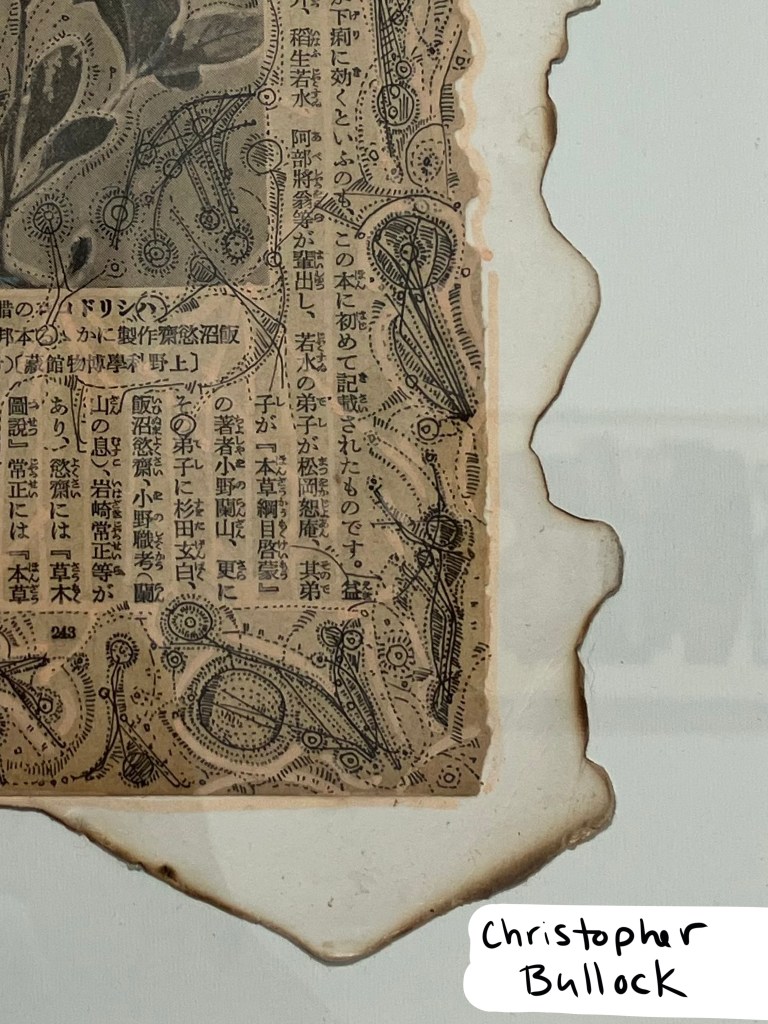 下痢に効くといふのも、この本に初めて記載されたものです。益
稲生若水、阿部將翁等が輩出し、若水の弟子が松岡恕庵、其弟
子が『本草綱目啓蒙』
の著者小野蘭山、更に
その弟子に杉田玄白、
飯沼慾齋、小野職考(蘭
山の息)、岩崎常正等が
あり、慾齋には『草木
圖說』常正には『本草
ハシリドコロの腊
飯沼慾齋作製にかゝる本邦
〔上野科學博物館藏〕
243
Christopher
Bullock